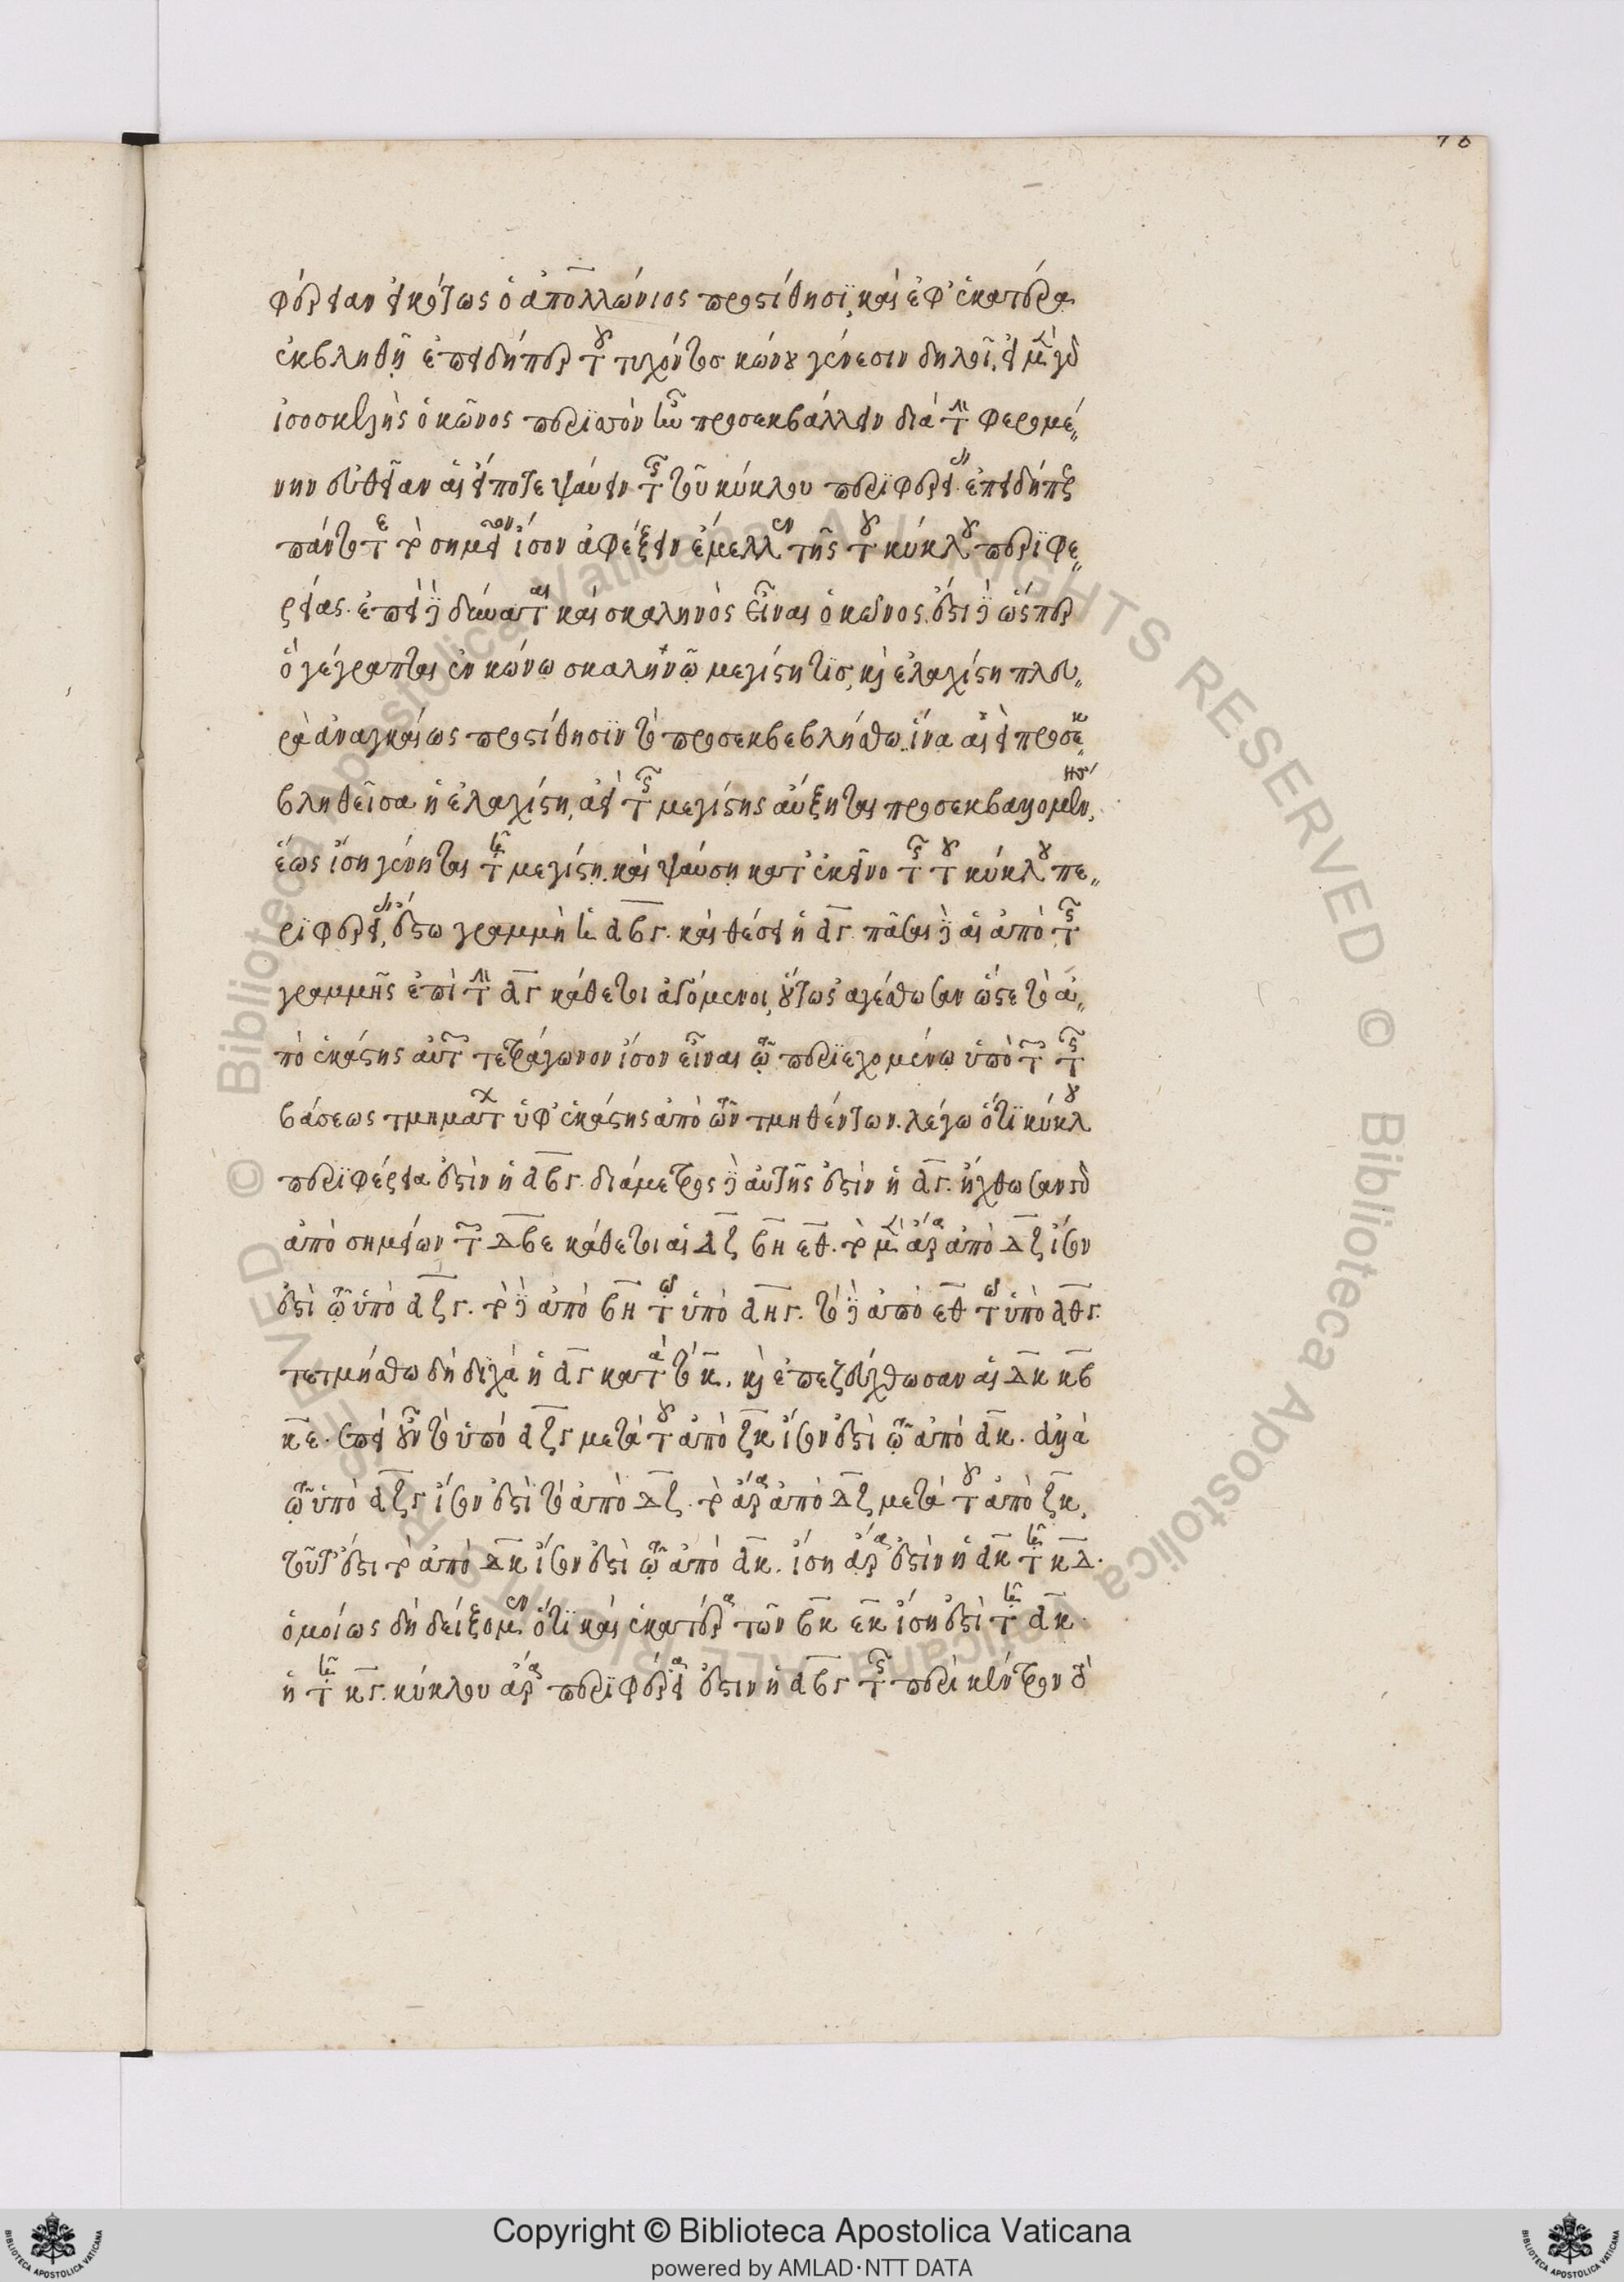 78
φέρειαν εἰκότως ὁ ἀπολλώνιος προστίθησι, καὶ ἐφ' ἑκάτερα
ἐκβληθῇ ἐπειδήπερ τοῦ τυχόντος κώνου γένεσιν δηλοῖ. εἰ μὲν γὰρ
ἰσοσκελὴς ὁ κῶνος περιττὸν ἦν προσεκβάλλειν διὰ τὴν φερομέ-
νην εὐθεῖαν αἰεί ποτε ψαύειν τῆς τοῦ κύκλου περιφερείας. ἐπειδήπερ
πάντοτε τὸ σημεῖον ἴσον ἀφέξειν ἔμελλεν τῆς τοῦ κύκλου περιφε-
ρείας. ἐπεὶ δὲ δύναται καὶ σκαληνὸς εἶναι ὁ κῶνος. ἔστι δὲ ὥσπερ
ὁ γέγραπται ἐν κώνω σκαληνῶ μεγίστη τις, καὶ ἐλαχίστη πλευ-
ρὰ ἀναγκαίως προστίθησιν τὸ προσεκβεβλήσθω. ἵνα αἰεὶ προσεκ-
βληθεῖσα ἡ ἐλαχίστη, ἀεὶ τῆς μεγίστης αὔξηται προσεκβαλλομένης,
ἕως ἴση γένηται τῇ μεγίστη. καὶ ψαύση κατ' ἐκεῖνο τῆς τοῦ κύκλου πε-
ριφερείας, ἔστω γραμμὴ ἡ αβγ. καὶ θέσει ἡ αγ. πᾶσαι δὲ αἱ ἀπὸ τῆς
γραμμῆς ἐπὶ τὴν αγ κάθετοι ἀγόμενοι, οὕτως ἀγέσθωσαν ὥστε τὸ ἀ-
πὸ ἑκάστης αὐτῶν τετράγωνον ἴσον εἶναι τῷ περιεχομένω ὑπὸ τῶν τῆς
βάσεως τμημάτων ὑφ' ἑκάστης ἀπὸ τῶν τμηθέντων. λέγω ὅτι κύκλου
περιφέρεια ἐστὶν ἡ αβγ. διάμετρος δὲ αὐτῆς ἐστὶν ἡ αγ. ἤχθωσαν γὰρ
ἀπὸ σημείων τῶν δβε κάθετοι αἱ δζ βη εθ. τὸ μὲν ἄρα ἀπὸ δζ ἴσον
ἐστὶ τῷ ὑπὸ αζγ. τὸ δὲ ἀπὸ βη τῷ ὑπὸ αηγ. τὸ δὲ ἀπὸ εθ τῷ ὑπὸ αθγ.
τετμήσθω δὴ δίχα ἡ αγ κατὰ τὸ κ. καὶ ἐπεζεύχθωσαν αἱ δκ κβ
κε. ἐπεὶ οὖν τὸ ὑπὸ αζγ μετὰ τοῦ ἀπὸ ζκ ἴσον ἐστὶ τῷ ἀπὸ ακ. ἀλλὰ
τῷ ὑπὸ αζγ ἴσον ἐστὶ τὸ ἀπὸ δζ. τὸ ἄρα ἀπὸ δζ μετὰ τοῦ ἀπὸ ζκ,
τοῦτ' ἔστι τὸ ἀπὸ δκ ἴσον ἐστὶ τῷ ἀπὸ ακ. ἴση ἄρα ἐστὶν ἡ ακ τῇ κδ.
ὁμοίως δὴ δείξομεν ὅτι καὶ ἑκατέρα τῶν βκ εκ ἴση ἐστὶ τῇ ακ.
ἢ τῇ κγ. κύκλου ἄρα περιφέρεια ἐστιν ἡ αβγ τῆς περὶ κέντρον τὸ
© Biblioteca Apostolica Vaticana ALL RIGHTS RESERVED © Biblioteca Apostolica Vaticana ALL RIGHTS RESERVED
Copyright © Biblioteca Apostolica Vaticana
powered by AMLAD·NTT DATA
BIBLIOTECA APOSTOLICA VATICANA
BIBLIOTECA APOSTOLICA VATICANA